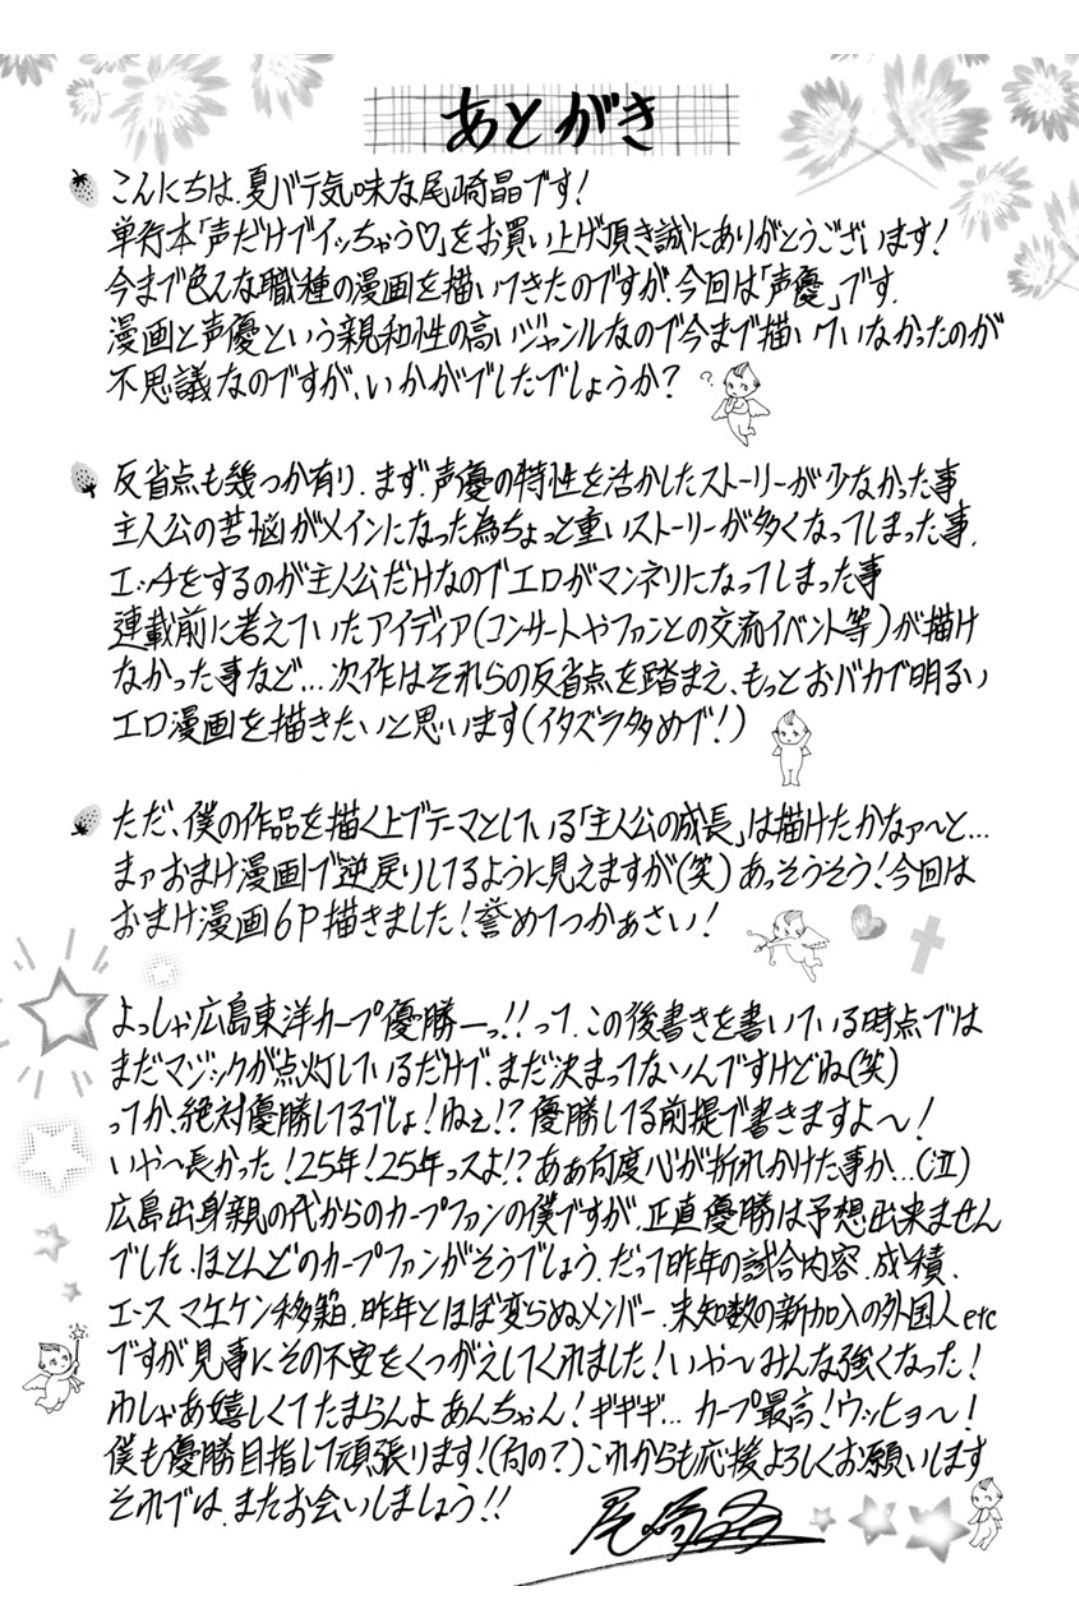 あとがき
こんにちは、夏バテ気味な尾崎晶です!
単行本「声だけでイッちゃう♡」をお買い上げ頂き誠にありがとうございます!
今まで色んな職種の漫画を描いてきたのですが、今回は「声優」です。
漫画と声優という親和性の高いジャンルなので今まで描いていなかったのが
不思議なのですが、いかがでしたでしょうか?
?
反省点も幾つか有り、まず、声優の特性を活かしたストーリーが少なかった事、
主人公の苦悩がメインになった為ちょっと重いストーリーが多くなってしまった事、
エッチをするのが主人公だけなのでエロがマンネリになってしまった事
連載前に考えていたアイディア(コンサートやファンとの交流イベント等)が描け
なかった事など…次作はそれらの反省点を踏まえ、もっとおバカで明るい
エロ漫画を描きたいと思います(イタズラ多めで!)
ただ、僕の作品を描く上でテーマとしている「主人公の成長」は描けたかなァ〜と…
まァおまけ漫画で逆戻りしてるように見えますが(笑)あっそうそう!今回は
おまけ漫画6P描きました!誉めてつかぁさい!
よっしゃ広島東洋カープ優勝ーっ!!って、この後書きを書いている時点では
まだマジックが点灯しているだけで、まだ決まってないんですけどね(笑)
ってか、絶対優勝してるでしょ!ねぇ!?優勝してる前提で書きますよ〜!
いや〜長かった!25年!25年っスよ!?ああ何度心が折れかけた事か…(泣)
広島出身親の代からのカープファンの僕ですが、正直優勝は予想出来ません
でした、ほとんどのカープファンがそうでしょう、だって昨年の試合内容、成績、
エース マエケン移籍、昨年とほぼ変らぬメンバー、未知数の新加入の外国人etc
ですが見事にその不安をくつがえしてくれました!いや〜みんな強くなった!
わしゃあ嬉しくてたまらんよあんちゃん!ギギギ…カープ最高!ウッヒョ〜!
僕も優勝目指して頑張ります!(何の?)これからも応援よろしくお願いします
それでは、またお会いしましょう!!
尾崎晶